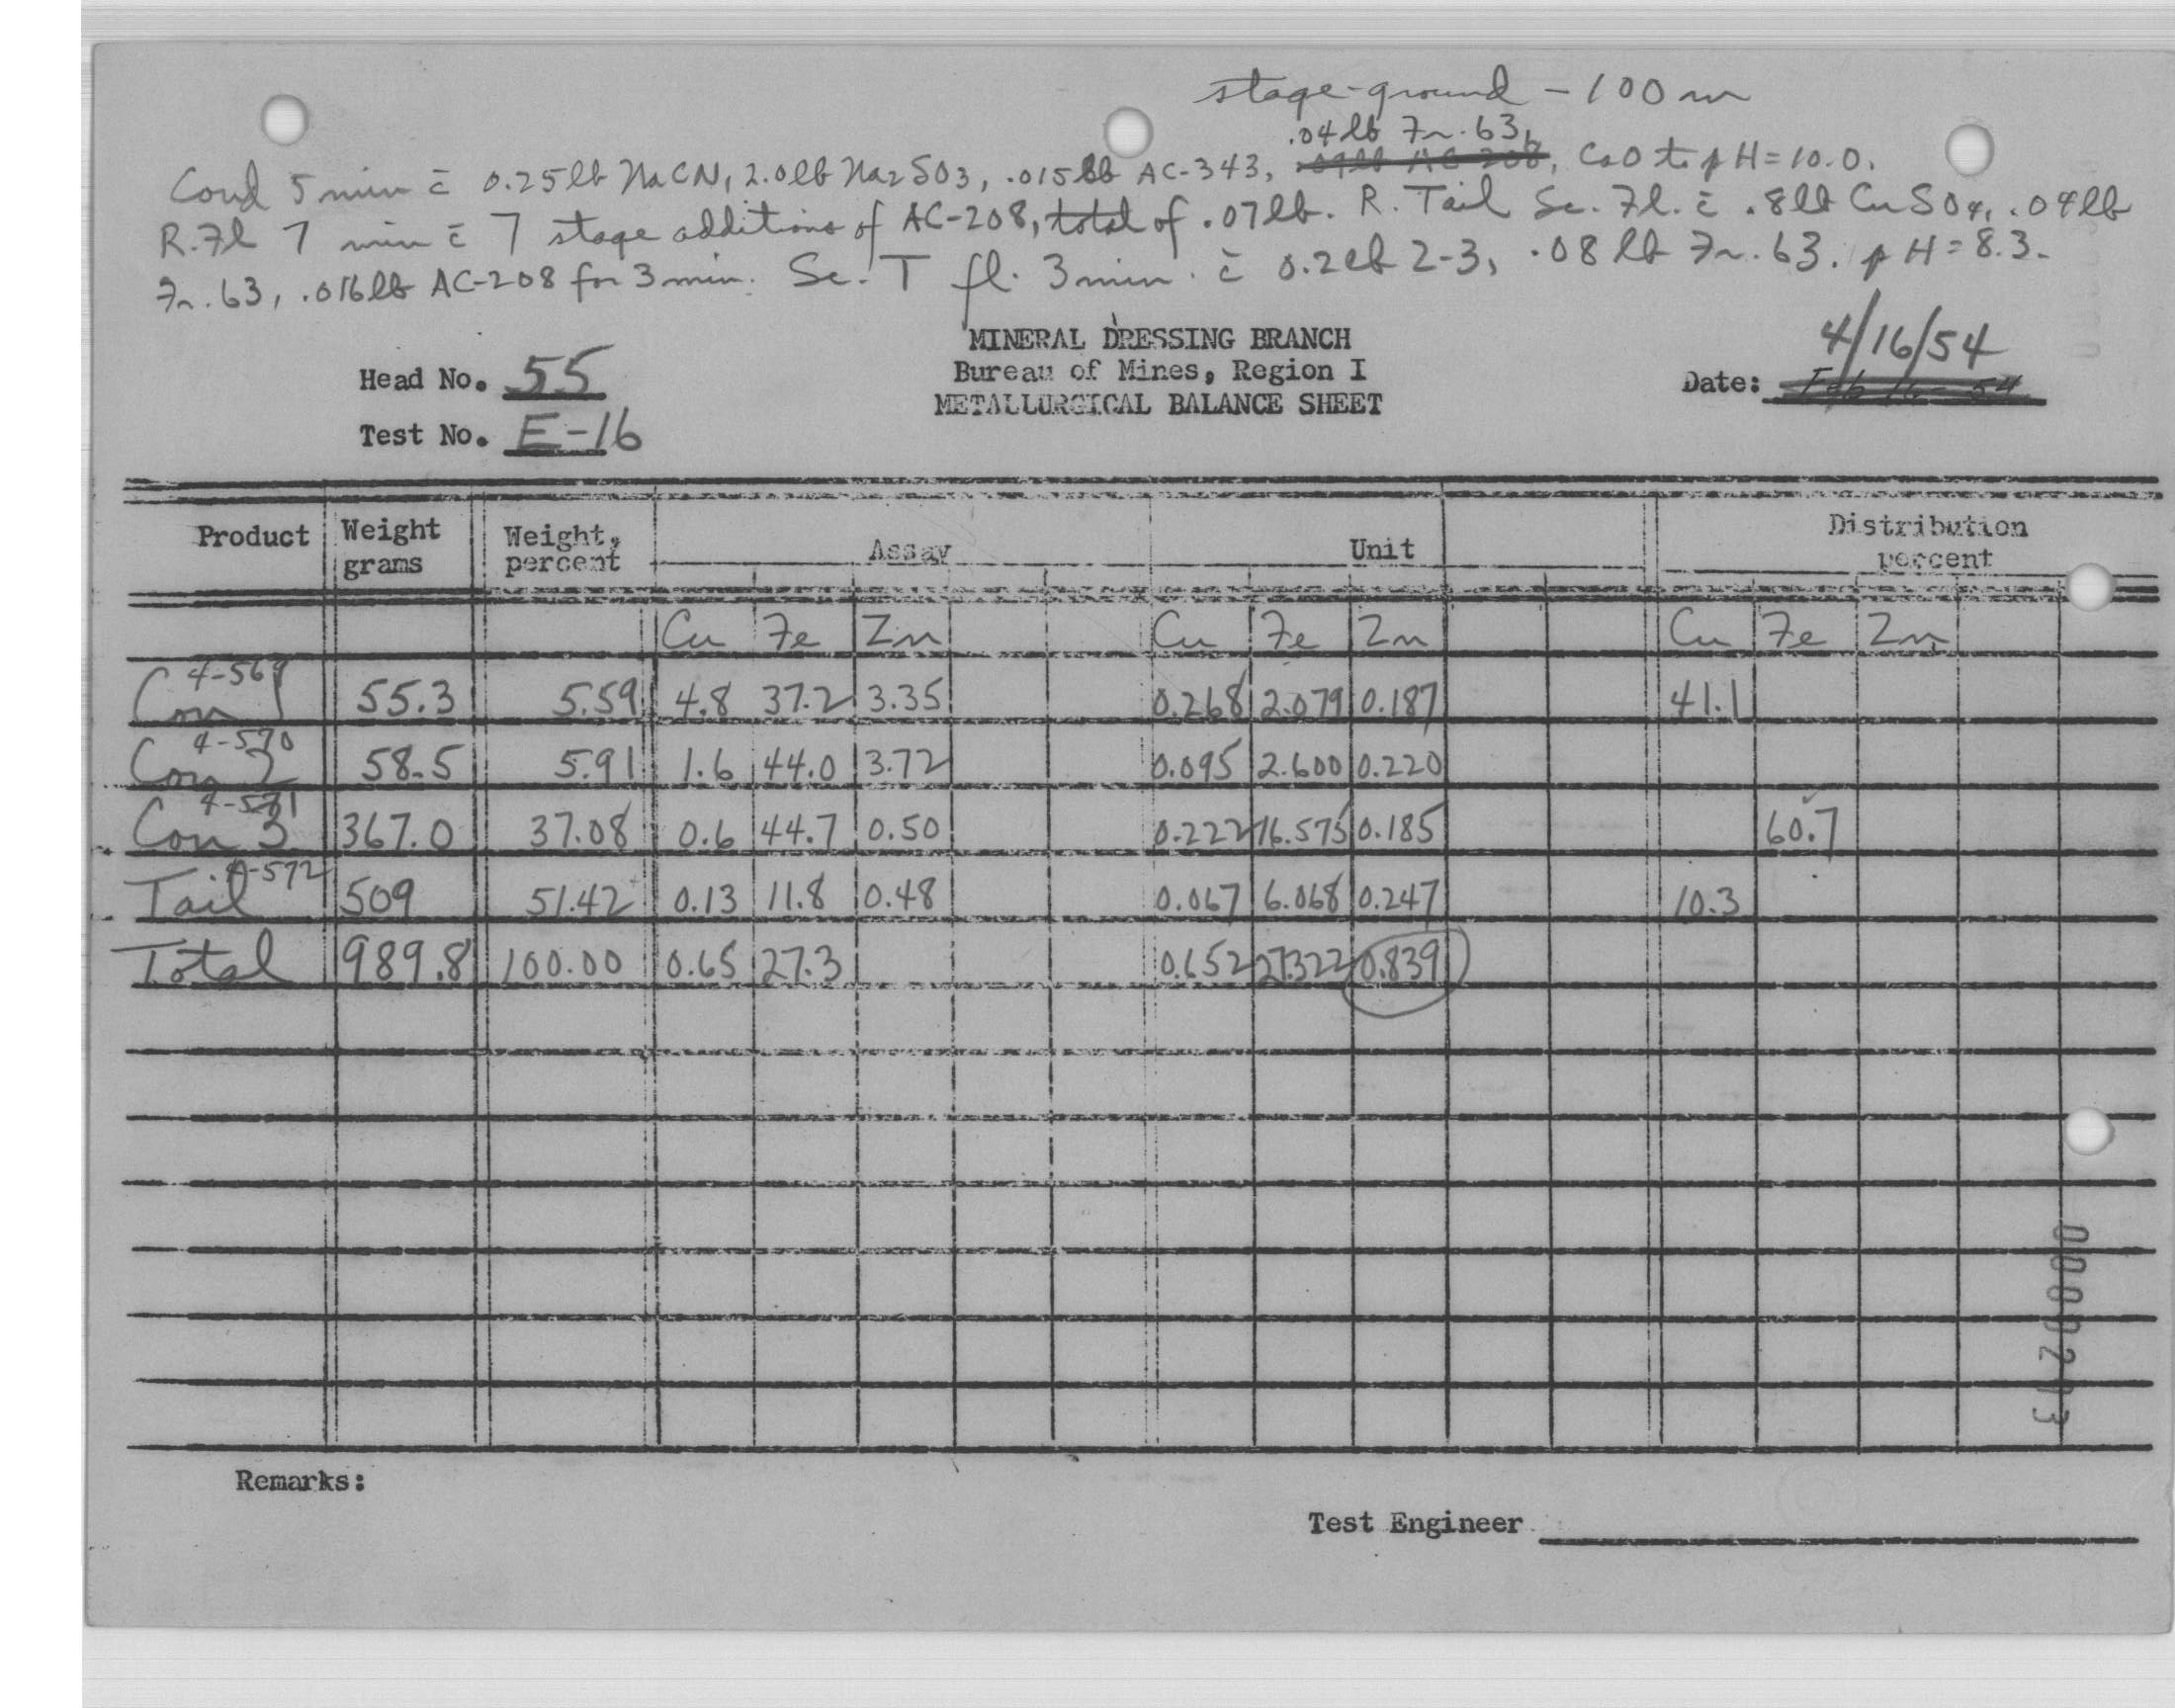 stage-ground - 100 m
.04 lb Fr. 63,
Cond 5 min c̄ 0.25 lb NaCN, 2.0 lb Na2SO3, .015 lb AC-343, .04 lb AC-208, CaO to pH = 10.0.
R. Fl 7 min c̄ 7 stage additions of AC-208, total of .07 lb. R. Tail Sc. Fl. c̄ .8 lb CuSO4, .04 lb
Fr. 63, .016 lb AC-208 for 3 min. Sc. T fl. 3 min. c̄ 0.2 lb Z-3, .08 lb Fr. 63. pH = 8.3.
MINERAL DRESSING BRANCH
Bureau of Mines, Region I
METALLURGICAL BALANCE SHEET
Head No. 55
Test No. E-16
4/16/54
Date: Feb 16 - 54
Product Weight grams Weight, percent Assay Unit Distribution percent
Cu Fe Zn Cu Fe Zn Cu Fe Zn
4-569
Con 1 55.3 5.59 4.8 37.2 3.35 0.268 2.079 0.187 41.1
4-570
Con 2 58.5 5.91 1.6 44.0 3.72 0.095 2.600 0.220
4-571
Con 3 367.0 37.08 0.6 44.7 0.50 0.222 16.575 0.185 60.7
4-572
Tail 509 51.42 0.13 11.8 0.48 0.067 6.068 0.247 10.3
Total 989.8 100.00 0.65 27.3 0.652 27.322 0.839
Remarks:
Test Engineer